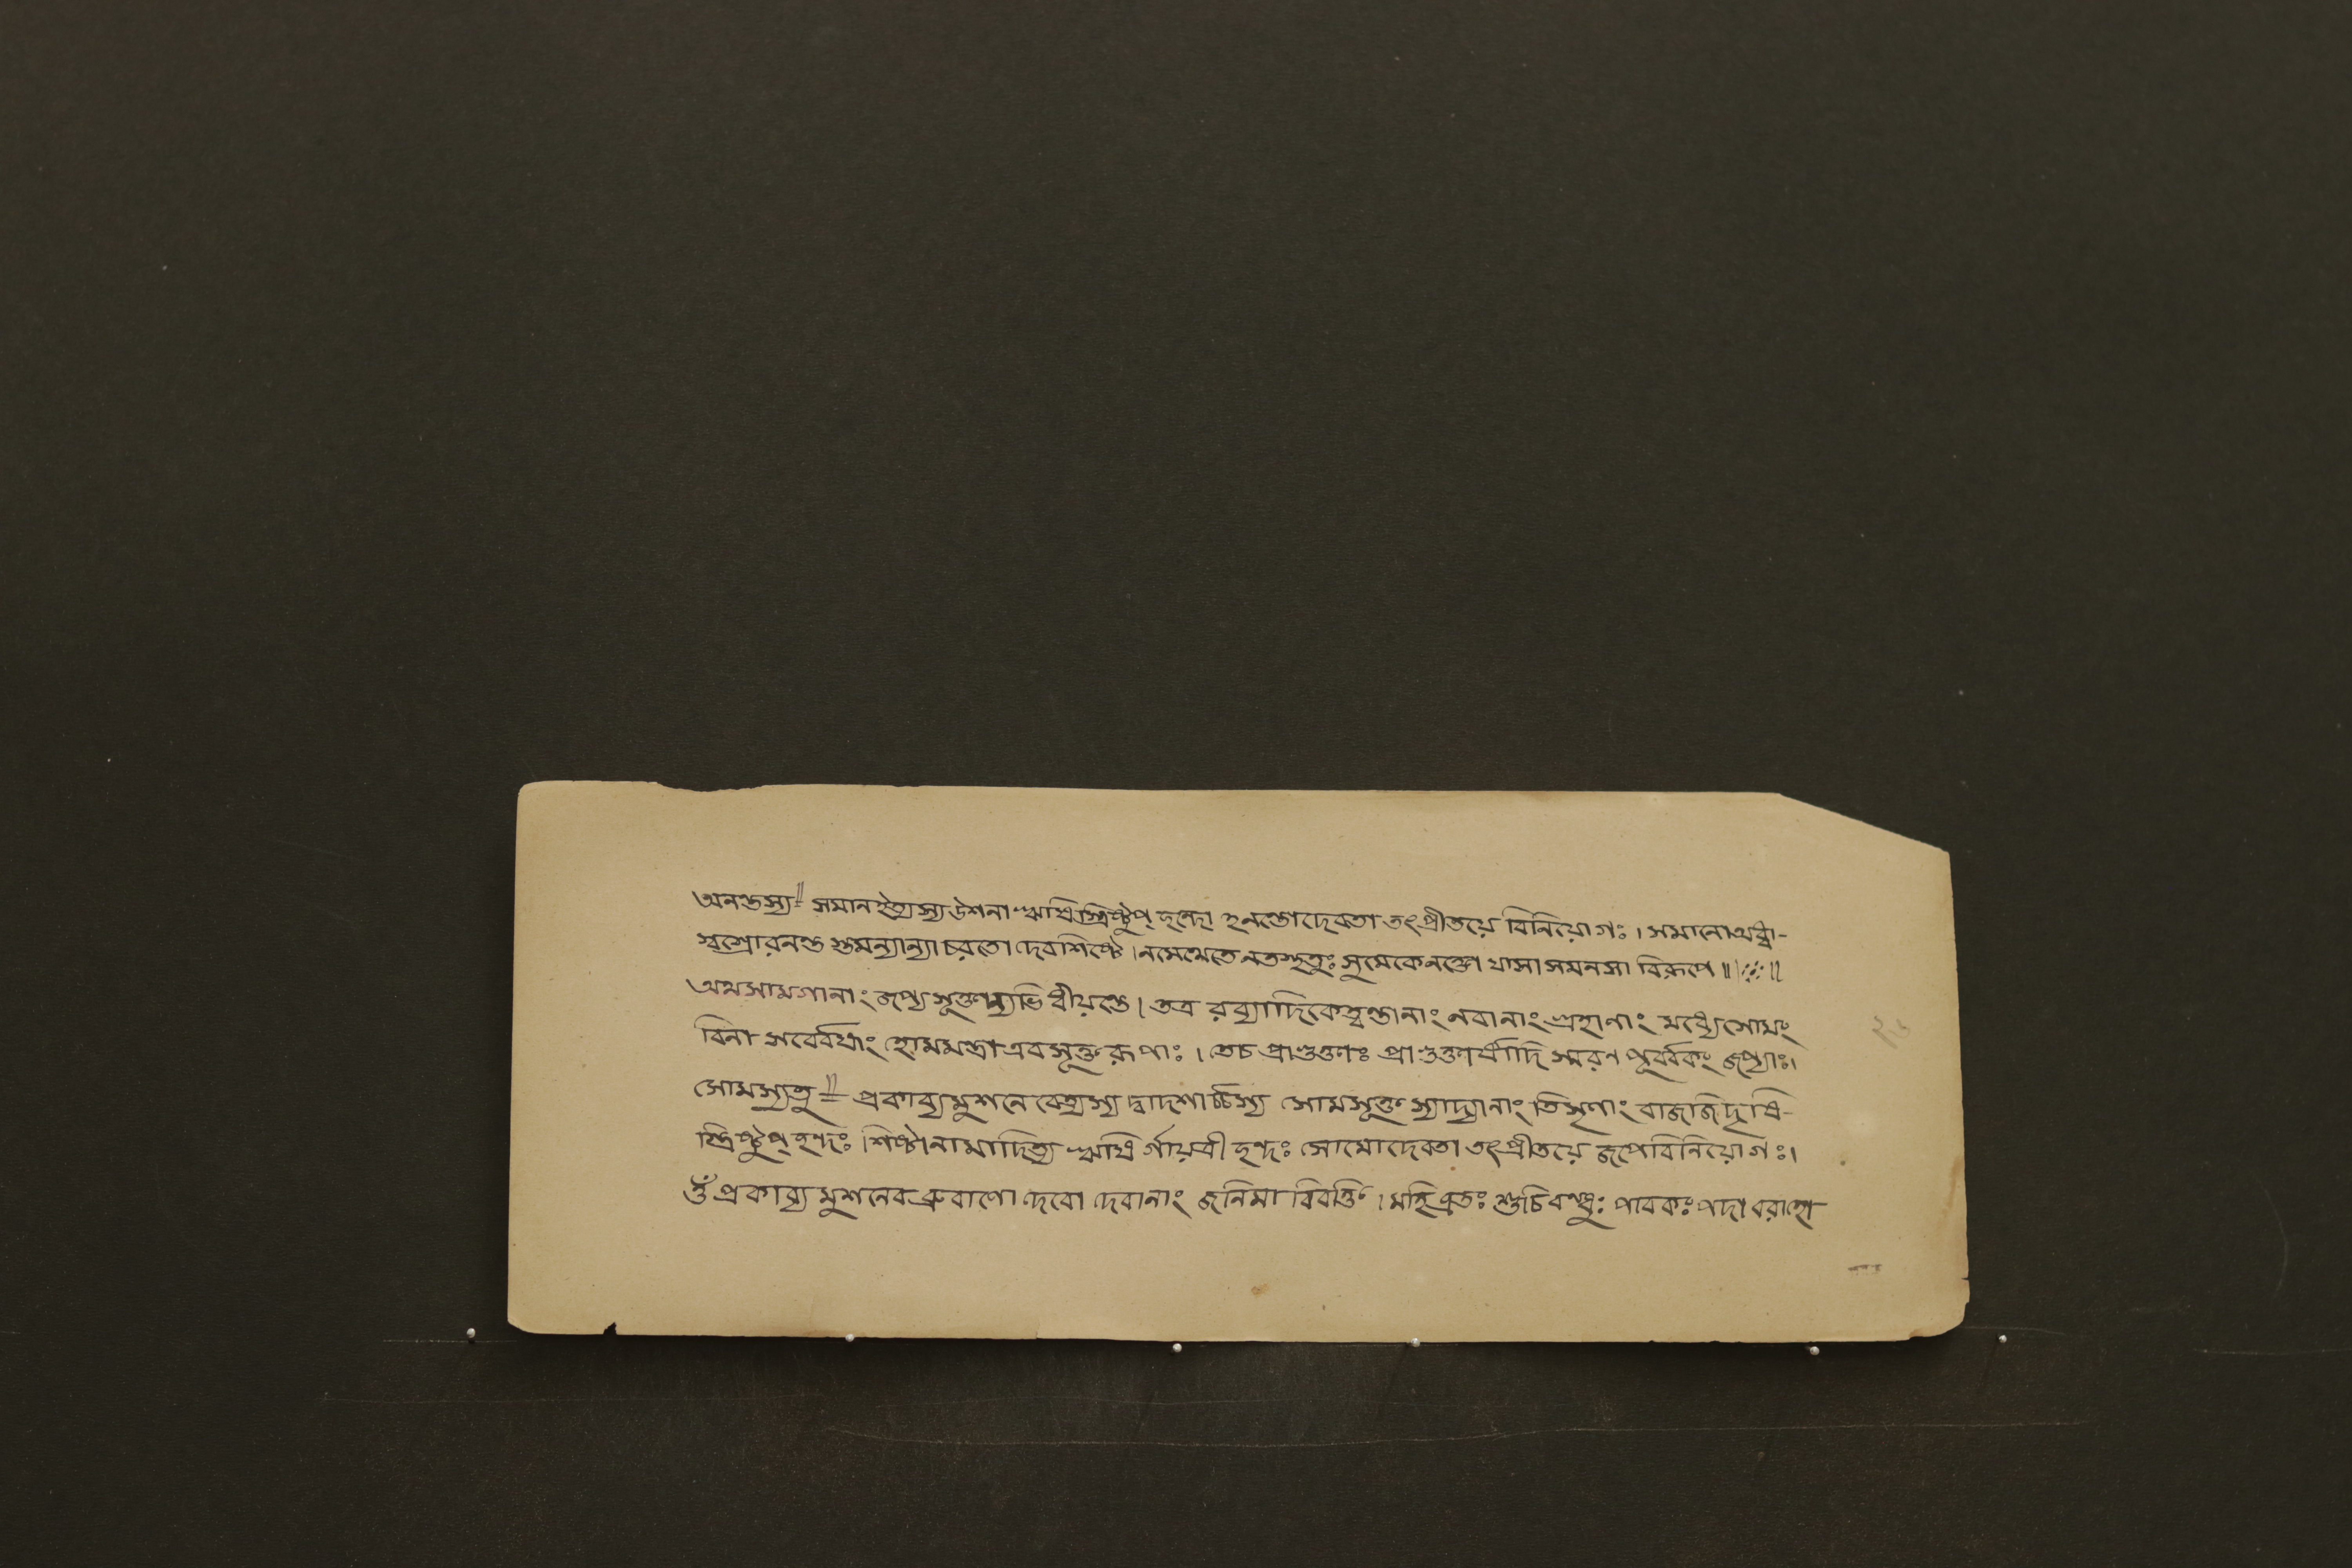 অনন্তস্য॥ সমানইত্যস্য উশনা ঋষিস্ত্রিষ্টুপ্ ছন্দো হনন্তোদেবতা তৎপ্রীতয়ে বিনিয়োগঃ। সমানোঅধ্বা-
স্বস্রোরনন্ত স্তমন্যান্যা চরতো দেবশিষ্টে। নমেথেতে নতস্থতুঃ সুমেকে নক্তো যাসা সমনসা বিরূপে॥
অথসামগানাং জপ্যে সূক্তান্যভিধীয়ন্তে। তত্র রব্যাদিকেত্বন্তানাং নবানাং গ্রহাণাং মধ্যে সোমং
বিনা সর্ব্বেষাং হোমমন্ত্রাএবসূক্তরূপাঃ। তেচ প্রাগুক্তাঃ প্রাগুক্তার্ষাদি স্মরণ পূর্ব্বকং জপ্যাঃ।
সোমস্যতু॥ প্রকাব্যমুশনে বেত্যস্য দ্বাদশার্চ্চস্য সোমসূক্তস্যাদ্যানাং তিসৃণাং বাজজিদৃষি-
স্ত্রিষ্টুপ্ ছন্দঃ শিষ্টানামাদিত্য ঋষির্গায়ত্রী ছন্দঃ সোমোদেবতা তৎপ্রীতয়ে জপেবিনিয়োগঃ।
ওঁ প্রকাব্য মুশনেব ব্রুবাণো দেবো দেবানাং জনিমা বিবক্তি। মহিব্রতঃ শুচিবন্ধুঃ পাবকঃ পদা বরাহো